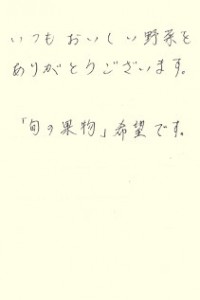 いつもおいしい野菜を
ありがとうございます。
「旬の果物」希望です。